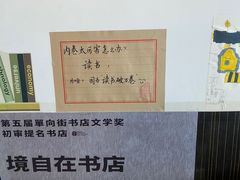 内卷太厉害怎么办？
读书，
第五届單向街书店文学奖
初审提名书店
境自在书店
economy